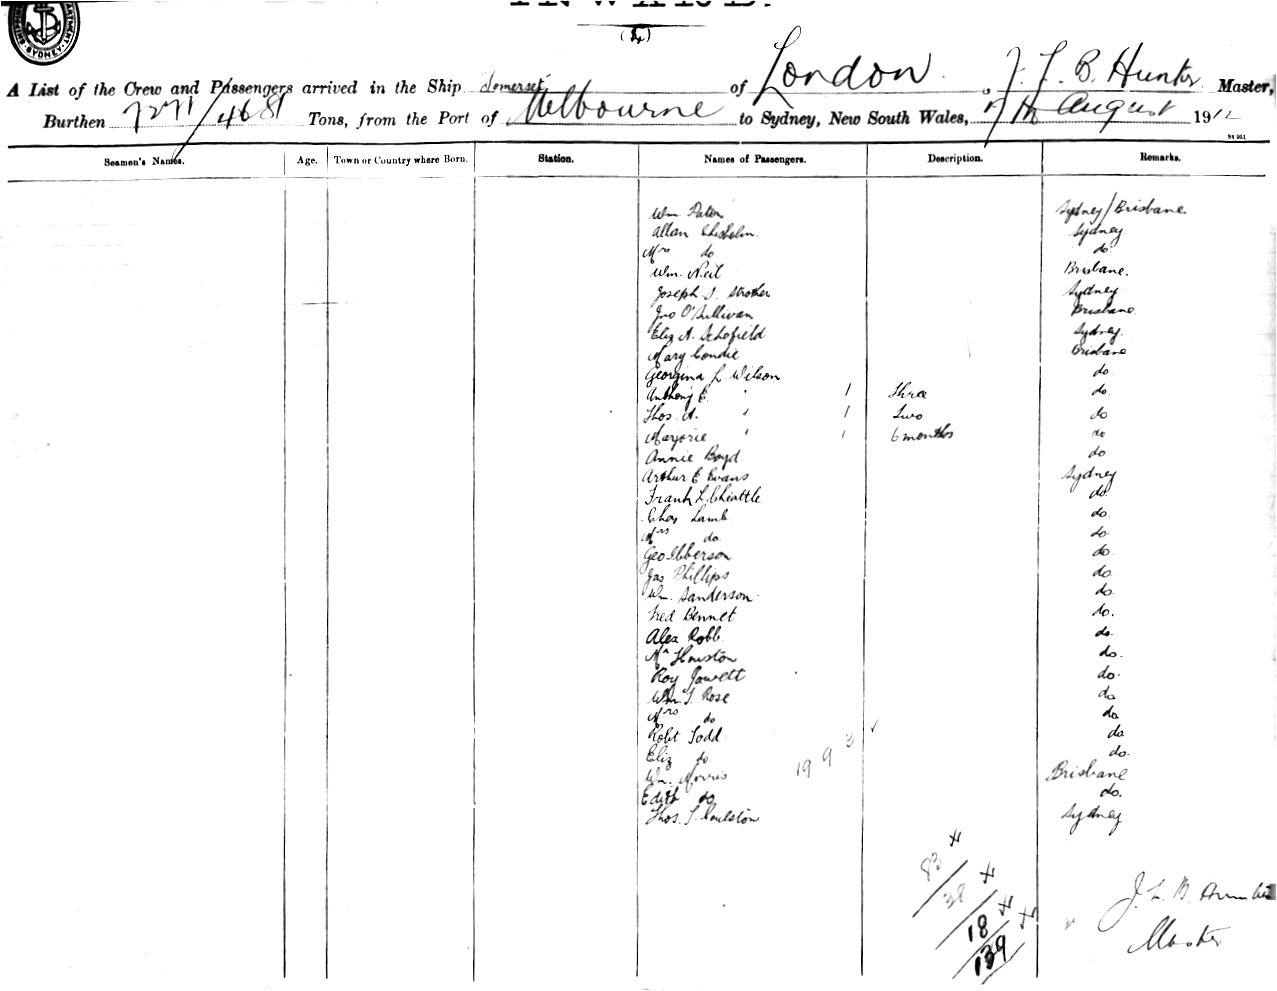 INWARD.
(4)
SHIPPING DEPARTMENT SYDNEY
A List of the Crew and Passengers arrived in the Ship Somerset of London, J. L. B. Hunter Master,
Burthen 7271/4681 Tons, from the Port of Melbourne to Sydney, New South Wales, 7th August 1912
Seamen's Names. Age. Town or Country where Born. Station. Names of Passengers. Description. Remarks.
Wm Paton Sydney/Brisbane.
Allan Chisholm. Sydney
Mrs do do
Wm. Neil Brisbane.
Joseph S. Strother Sydney
Jno O'Sullivan Brisbane
Eliz A. Schofield Sydney.
Mary Condie Brisbane
Georgina L Wilson do
Anthony C. " 1 Three do.
Thos. A. " 1 Two do
Marjorie " 1 6 months do
Annie Boyd do
Arthur E Evans Sydney
Frank L. do.
Chas Lamb do.
Mrs do do.
Geo Ibberson do.
Jas Phillips do.
Wm. Sanderson do.
Fred Bennet do.
Alex Robb do.
Mr Houston do.
Roy Jowett do.
Wm. J. Rose do
Mrs do do
Robt Todd do
Eliz do do.
Wm. Morris Brisbane
Edith do do.
Thos. J. Sydney
19 9 3
83
38
18
139
J. L. B. Hunter
Master